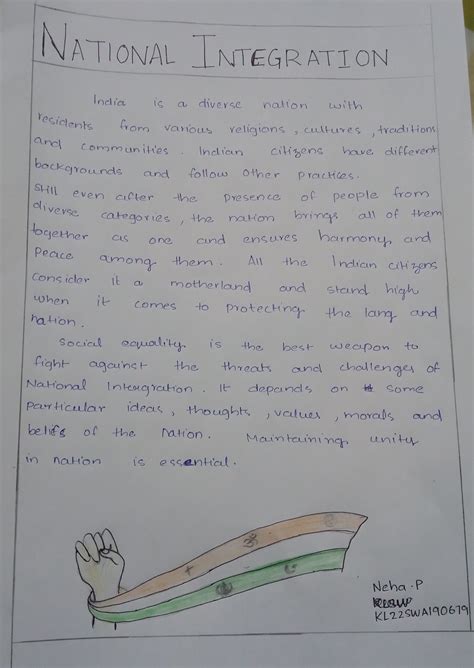 NATIONAL INTEGRATION
India is a diverse nation with
residents from various religions, cultures, traditions
and communities. Indian citizens have different
backgrounds and follow other practices.
Still even after the presence of people from
diverse categories, the nation brings all of them
together as one and ensures harmony and
peace among them. All the Indian citizens
consider it a motherland and stand high
when it comes to protecting the lang and
nation.
Social equality is the best weapon to
fight against the threats and challenges of
National Intergration. It depends on some
particular ideas, thoughts, values, morals and
beliefs of the nation. Maintaining unity
in nation is essential.
ॐ
Neha.P
KL22SWA190679